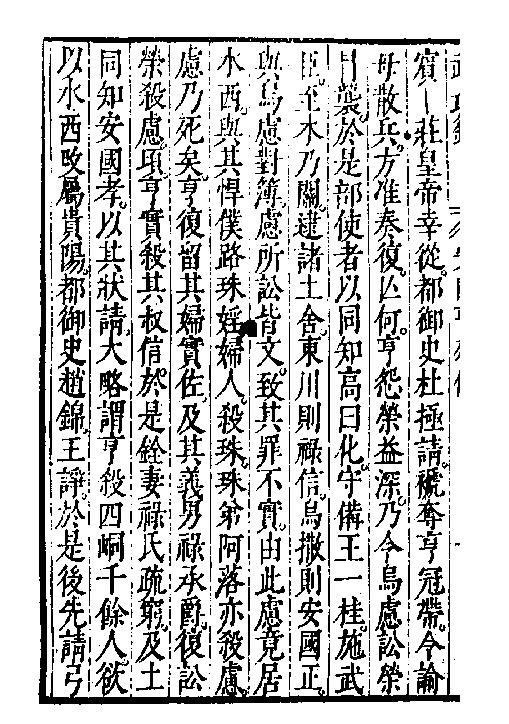 賓一莊皇帝幸從都御史杜極請褫奪亨冠帶令諭
毋散兵方准奏復亾何亨怨榮益深乃令烏慮訟榮
襲於是部使者以同知高曰化守備王一桂施武
臣至木乃關逮諸土舍東川則祿信烏撒則安國正
與烏慮對簿慮所訟皆文致其罪不實由此慮竟居
水西與其悍僕路珠婬婦人殺珠珠弟阿落亦殺慮
慮乃死矣亨復留其婦實佐及其義男祿承爵復訟
榮殺慮項亨實殺其叔信於是銓妻祿氏疏窮及土
同知安國孝以其狀請大略謂亨殺四峒千餘人欲
以水西改屬貴陽都御史趙錦王諍於是後先請弓